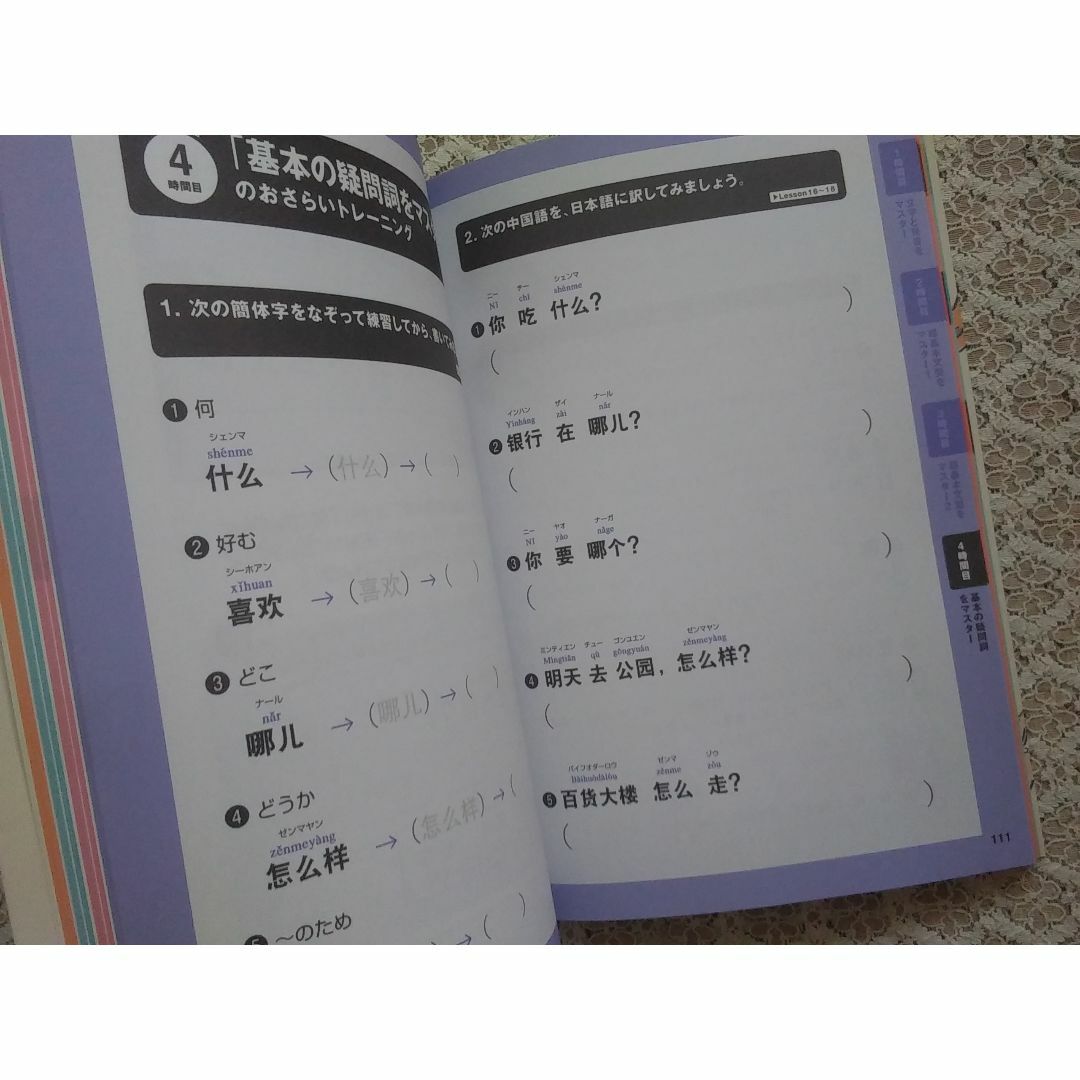 4
時間目
「基本の疑問詞をマス
のおさらいトレーニング
1. 次の簡体字をなぞって練習してから、書いて
1 何
シェンマ
shénme
什么 → (什么) → ( )
2 好む
シーホアン
xǐhuan
喜欢 → (喜欢) → ( )
3 どこ
ナール
nǎr
哪儿 → (哪儿) → ( )
4 どうか
ゼンマヤン
zěnmeyàng
怎么样 → (怎么样) → (
5 〜のため
) → ( )
2. 次の中国語を、日本語に訳してみましょう。
▶Lesson16〜18
ニー チー シェンマ
Nǐ chī shénme
1 你 吃 什么?
( )
インハン ザイ ナール
Yínháng zài nǎr
2 银行 在 哪儿?
( )
ニー ヤオ ナーガ
Nǐ yào nǎge
3 你 要 哪个?
( )
ミンティエン チュー ゴンユエン ゼンマヤン
Míngtiān qù gōngyuán zěnmeyàng
4 明天 去 公园, 怎么样?
( )
バイフオダーロウ ゼンマ ゾウ
bǎihuòdàlóu zěnme zǒu
5 百货大楼 怎么 走?
( )
111
1時間目
文字と発音を
マスター
2時間目
超基本文型を
マスター1
3時間目
超基本文型を
マスター2
4時間目
基本の疑問詞
をマスター